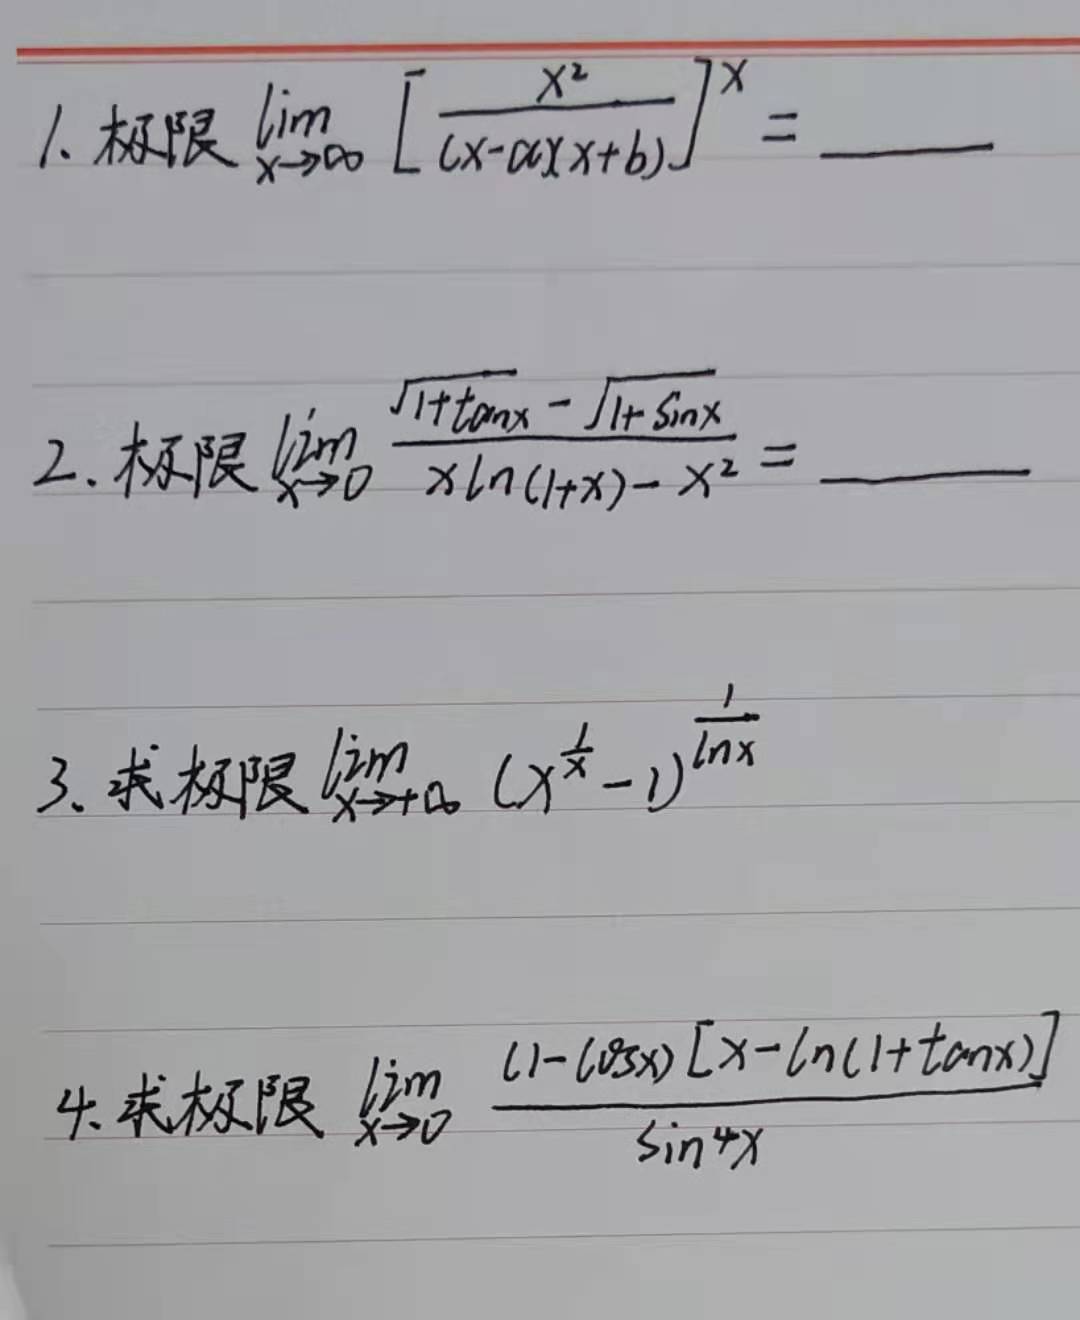 1. 极限 lim x→∞ [x²/((x-a)(x+b))]^x = ____
2. 极限 lim x→0 (√(1+tanx) - √(1+sinx))/(xln(1+x) - x²) = ____
3. 求极限 lim x→+∞ (x^(1/x) - 1)^(1/lnx)
4. 求极限 lim x→0 (1-cosx)[x-ln(1+tanx)]/sin⁴x